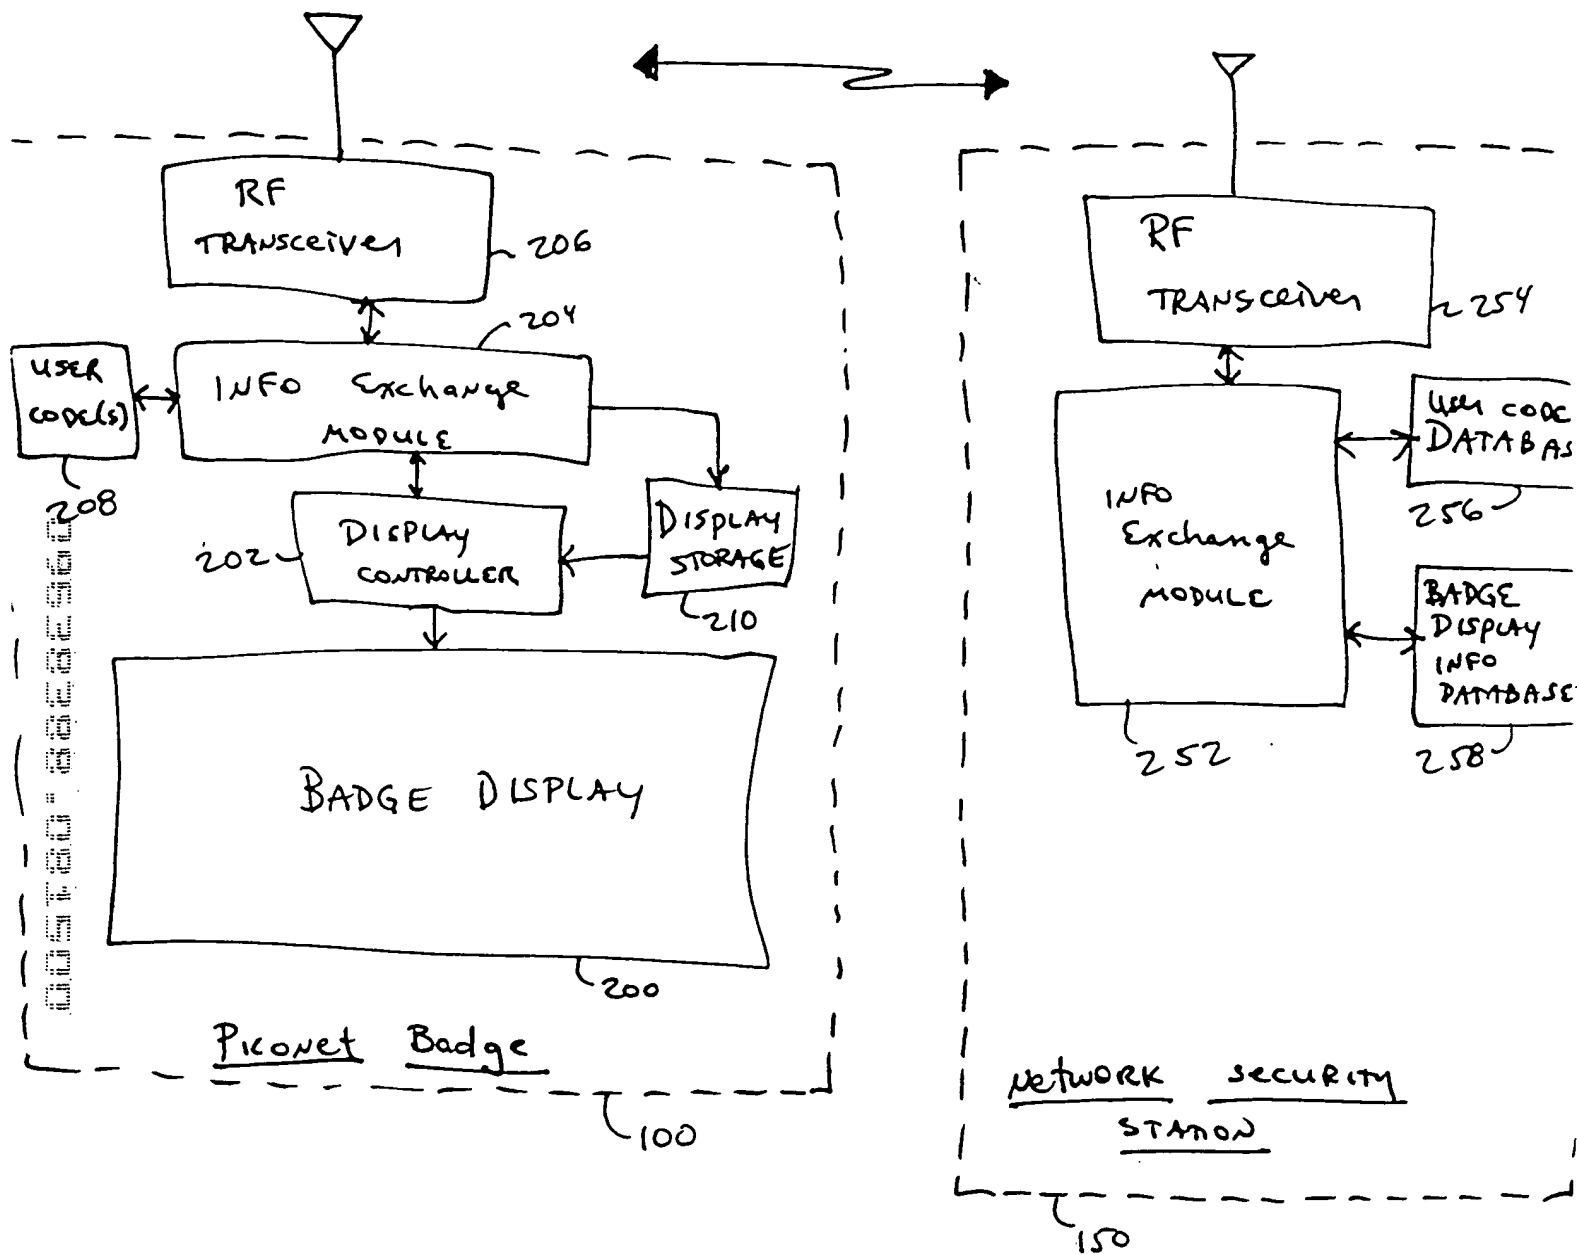 RF
TRANSceiver
206
204
USER
CODE(S)
208
INFO Exchange
MODULE
DISPLAY
CONTROLLER
202
DISPLAY
STORAGE
210
BADGE DISPLAY
200
Piconet Badge
100
RF
TRANSceiver
254
INFO
Exchange
MODULE
252
User CODE
DATABAS
256
BADGE
DISPLAY
INFO
DATABASE
258
Network Security
STATION
150